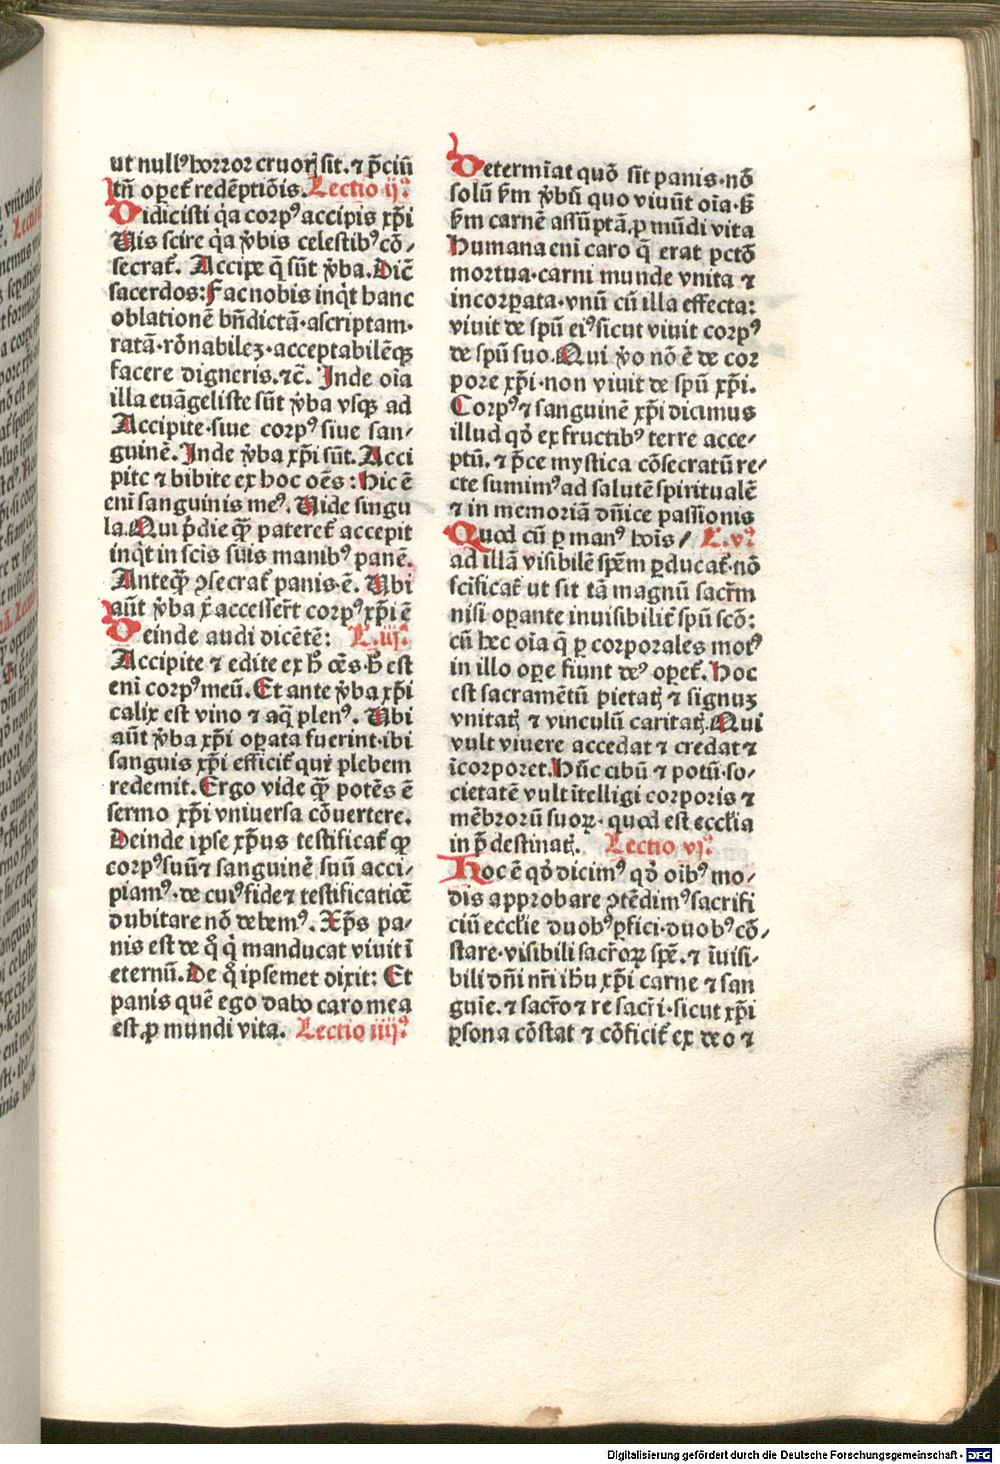 ut nullꝰ horror cruorꝭ sit. ⁊ p̄ciū
tn̄ operet᷑ redēptiōis. Lectio ijꝰ
Didicisti q̇a corpꝰ accipis xp̄i
Uis scire q̇a v̓bis celestibꝰ cō⸗
secrat᷑. Accipe q̄ sūt v̓ba. Dic̄
sacerdos: Fac nobis inq̇t hanc
oblationē bn̄dictā·ascriptam·
ratā·rōnabilez·acceptabilēqꝫ
facere digneris. ⁊c̄. Inde oīa
illa euāgeliste sūt v̓ba vsqꝫ ad
Accipite·siue corpꝰ siue san⸗
guinē. Inde v̓ba xp̄i sūt. Acci
pite ⁊ bibite ex hoc oēs: hic ē
enī sanguinis meꝰ. Uide singu
la. Qui p̄die qꝫ̄ pateret᷑ accepit
inq̇t in scīs suis manibꝰ panē.
Anteqꝫ̄ ꝯsecrat᷑ panis·ē. Ubi
aūt v̓ba xp̄i accesser̄t corpꝰ xp̄i ē
Deinde audi dicētē: L. iijꝰ
Accipite ⁊ edite ex h̓ oēs·h̓ est
enī corpꝰ meū. Et ante v̓ba xp̄i
calix est vino ⁊ aq̄ plenꝰ. Ubi
aūt v̓ba xp̄i oꝑata fuerint·ibi
sanguis xp̄i efficit᷑ qui plebem
redemit. Ergo vide qꝫ̄ potēs ē
sermo xp̄i vniuersa cōuertere.
Deinde ipse xp̄us testificat᷑ ꝙ
corpꝰ suū ⁊ sanguinē suū acci⸗
piamꝰ·de cuiꝰ fide ⁊ testificatiōe
dubitare nō debemꝰ. Xp̄s pa⸗
nis est de q̊ q̇ manducat viuit ī
eternū. De q̊ ipsemet dixit: Et
panis quē ego dabo caro mea
est ꝓ mundi vita. Lectio iiijꝰ
Determīat quō sit panis·nō
solū s̄m v̓bū quo viuūt oīa·sꝫ
s̄m carnē assūptā ꝓ mūdi vita
Humana enī caro q̄ erat pctō
mortua·carni munde vnita ⁊
incorꝑata·vnū cū illa effecta:
viuit de spū eiꝰ sicut viuit corpꝰ
de spū suo. Qui v̓o nō ē de cor
pore xp̄i·non viuit de spū xp̄i.
Corpꝰ ⁊ sanguinē xp̄i dicimus
illud qd̓ ex fructibꝰ terre acce⸗
ptū. ⁊ p̄ce mystica cōsecratū re⸗
cte sumimꝰ ad salutē spiritualē
⁊ in memoriā dn̄ice passionis
Quod cū ꝑ manꝰ hoīs⸗ L. vꝰ
ad illā visibilē spēm ꝑducat᷑·nō
scīficat᷑ ut sit tā magnū sacr̄m
nisi oꝑante inuisibilit᷑ spū scō:
cū hec oīa q̄ ꝑ corporales motꝰ
in illo oꝑe fiunt deꝰ operet᷑. Hoc
est sacramētū pietatꝭ ⁊ signuꝫ
vnitatꝭ ⁊ vinculū caritatꝭ. Qui
vult viuere accedat ⁊ credat ⁊
īcorporet. Hūc cibū ⁊ potū·so⸗
cietatē vult ītelligi corporis ⁊
mēbrorū suoꝝ·quod est ecclīa
in p̄destinatꝭ. Lectio vjꝰ
Hoc ē qd̓ dicimꝰ qd̓ oībꝰ mo⸗
dis approbare ꝯtēdimꝰ sacrifi
ciū ecclīe duobꝰ ꝑfici·duobꝰ cō⸗
stare·visibili sacr̄oꝝ spē. ⁊ īuisi⸗
bili dn̄i nr̄i ihū xp̄i carne ⁊ san
guīe. ⁊ sacr̄o ⁊ re sacr̄i·sicut xp̄i
ꝑsona cōstat ⁊ cōficit᷑ ex deo ⁊
Digitalisierung gefördert durch die Deutsche Forschungsgemeinschaft - DFG